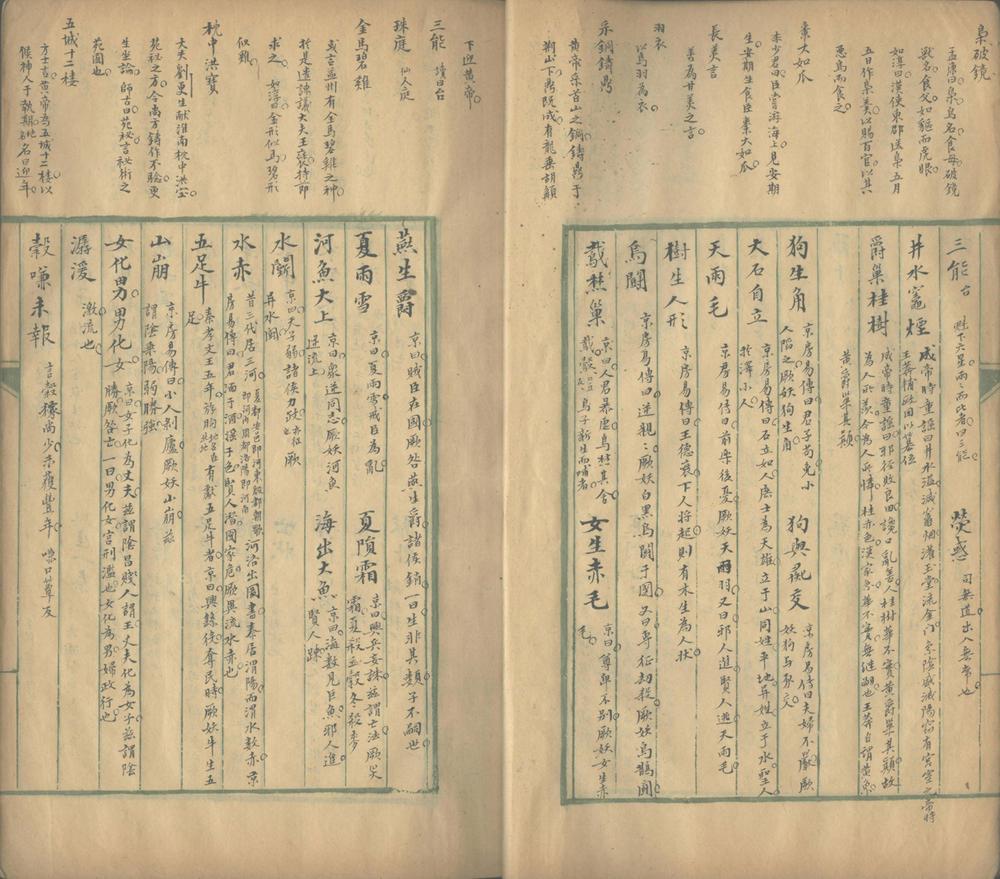 梟破鏡
孟康曰梟鳥名食母破鏡
獸名食父如貙而虎眼
如淳曰漢使東郡送梟五月
五日作梟羹以賜百官以其
惡鳥而食之
棗大如瓜
李少君曰臣嘗游海上見安期
生安期生食臣棗大如瓜
長美言
善為甘美之言
羽衣
以鳥羽為衣
采銅鑄鼎
黃帝采首山之銅鑄鼎于
荆山下鼎既成有龍垂胡䫇
下迎黃帝
三能 讀曰台
珠庭 仙人庭
金馬碧雞
或言益州有金馬碧雞之神
於是遣諫議大夫王襃持節
求之 如淳曰金形似馬碧形
似雞
枕中洪寶
大夫劉更生献淮南枕中洪宝
苑祕之方令尚方鑄作不驗更
生坐論 師古曰苑祕言祕術之
苑囿也
五城十二樓
方士言黃帝為五城十二樓以
候神人于執期地名名曰迎年
三能台 魁下六星兩兩而比者曰三能 熒惑 司無道出入無常也
井水竈煙 成帝時童謠曰井水溢滅竈烟灌玉堂流金門 京陰盛滅陽竊有宮室之帝時
王莽輔政因以篡位
爵巢桂樹 成帝時童謠曰邪徑敗良田讒口亂善人桂樹華不實黃爵巢其顛故
為人所羨今為人所憐桂赤色漢家 華不實無繼嗣也王莽自謂黃象
黃爵巢其顛
狗生角 京房易傳曰君子苟免小
人陷之厥妖狗生角 狗與彘交 京房易傳曰夫婦不嚴厥
妖狗与豕交
大石自立 京房易傳曰石立如人庶士為天雄立于山同姓平地異姓立于水聖人
於澤小人
天雨毛 京房易傳曰前樂後憂厥妖天雨羽又曰邪人進賢人逃天雨毛
樹生人形 京房易傳曰王德衰下人将起則有木生為人狀
烏鬬 京房易傳曰逆親厥妖白黑烏鬬于國又曰專征劫殺厥妖烏鵲鬬
䳒焚巢 京曰人君暴虐鳥焚其舍 女生赤毛 京曰尊卑不别厥妖女生赤
毛
燕生爵 京曰賊臣在國厥咎燕生爵諸侯銷一曰生非其類子不嗣世
夏雨雪 京曰夏雨雪戒臣為亂 夏隕霜 京曰興兵妄誅兹謂亡法厥灾
霜夏殺五穀冬殺麥
河魚大上 京曰衆逆同志厥妖河魚
逆流上 海出大魚 京曰海數見巨魚邪人進
賢人疎
水鬭 京曰天子弱諸侯力政 厥
異水鬬
水赤 昔三代居三河 河洛出圖書秦居渭陽而渭水數赤京
房易傳曰君湎于酒淫于色賢人潛國家危厥異流水赤也
五足牛 秦孝文王五年斿朐衍 有献五足牛者京曰興繇役奪民時厥妖牛生五
足
山崩 京房易傳曰小人剥廬厥妖山崩兹
謂陰乘陽弱勝強
女化男男化女 京曰女子化為丈夫兹謂陰昌賤人謂王丈夫化為女子兹謂陰
勝厥咎亡一曰男化女宮刑濫也女化為男婦政行也
潺湲 激流也
穀嗛未報 言穀稼尚少未獲豐年 嗛口簟反